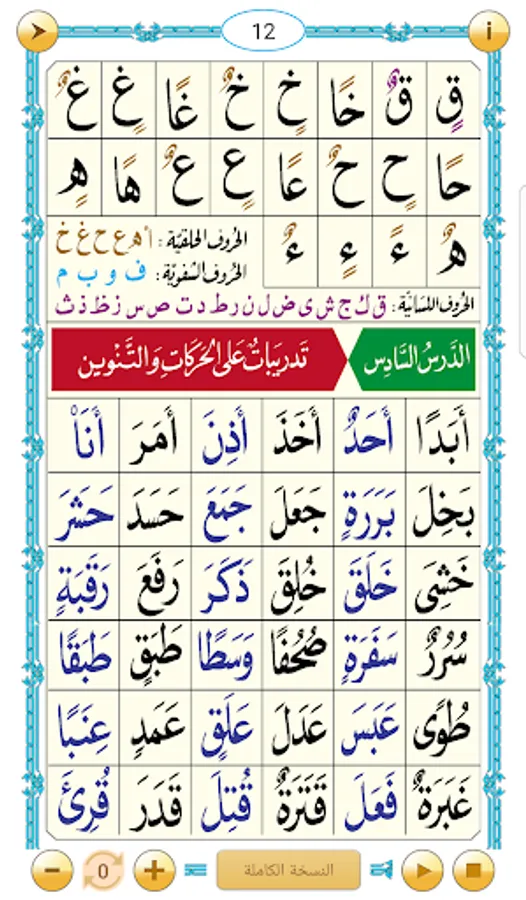 12
i
قٍ قٌ خًا خٍ خٌ غًا غٍ غٌ
حًا حٍ حٌ عًا عٍ عٌ هًا هٍ
هٌ ءً ءٍ ءٌ
الحروف الحلقيّة : أ ه ع ح غ خ
الحروف الشفويّة: ف و ب م
الحروف اللسانيّة: ق ك ج ش ى ض ل ن ر ط د ت ص س ز ظ ذ ث
الدَّرسُ السَّادِس
تَدرِيبَاتٌ عَلَى الحَرَكَاتِ وَالتَّنْوِين
أَبَدًا أَحَدٌ أَخَذَ أَذِنَ أَمَرَ أَنَا۠
بَخِلَ بَرَرَةٍ جَعَلَ جَمَعَ حَسَدَ حَشَرَ
خَشِىَ خَلَقَ خُلِقَ ذَكَرَ رَفَعَ رَقَبَةٍ
سُرُرٌ سَفَرَةٍ صُحُفًا وَسَطًا طَبَقٍ طَبَقًا
طُوًى عَبَسَ عَدَلَ عَلَقٍ عَمَدٍ عِنَبًا
غَبَرَةٌ فَعَلَ قَتَرَةٌ قُتِلَ قَدَرَ قُرِئَ
0
النسخة الكاملة